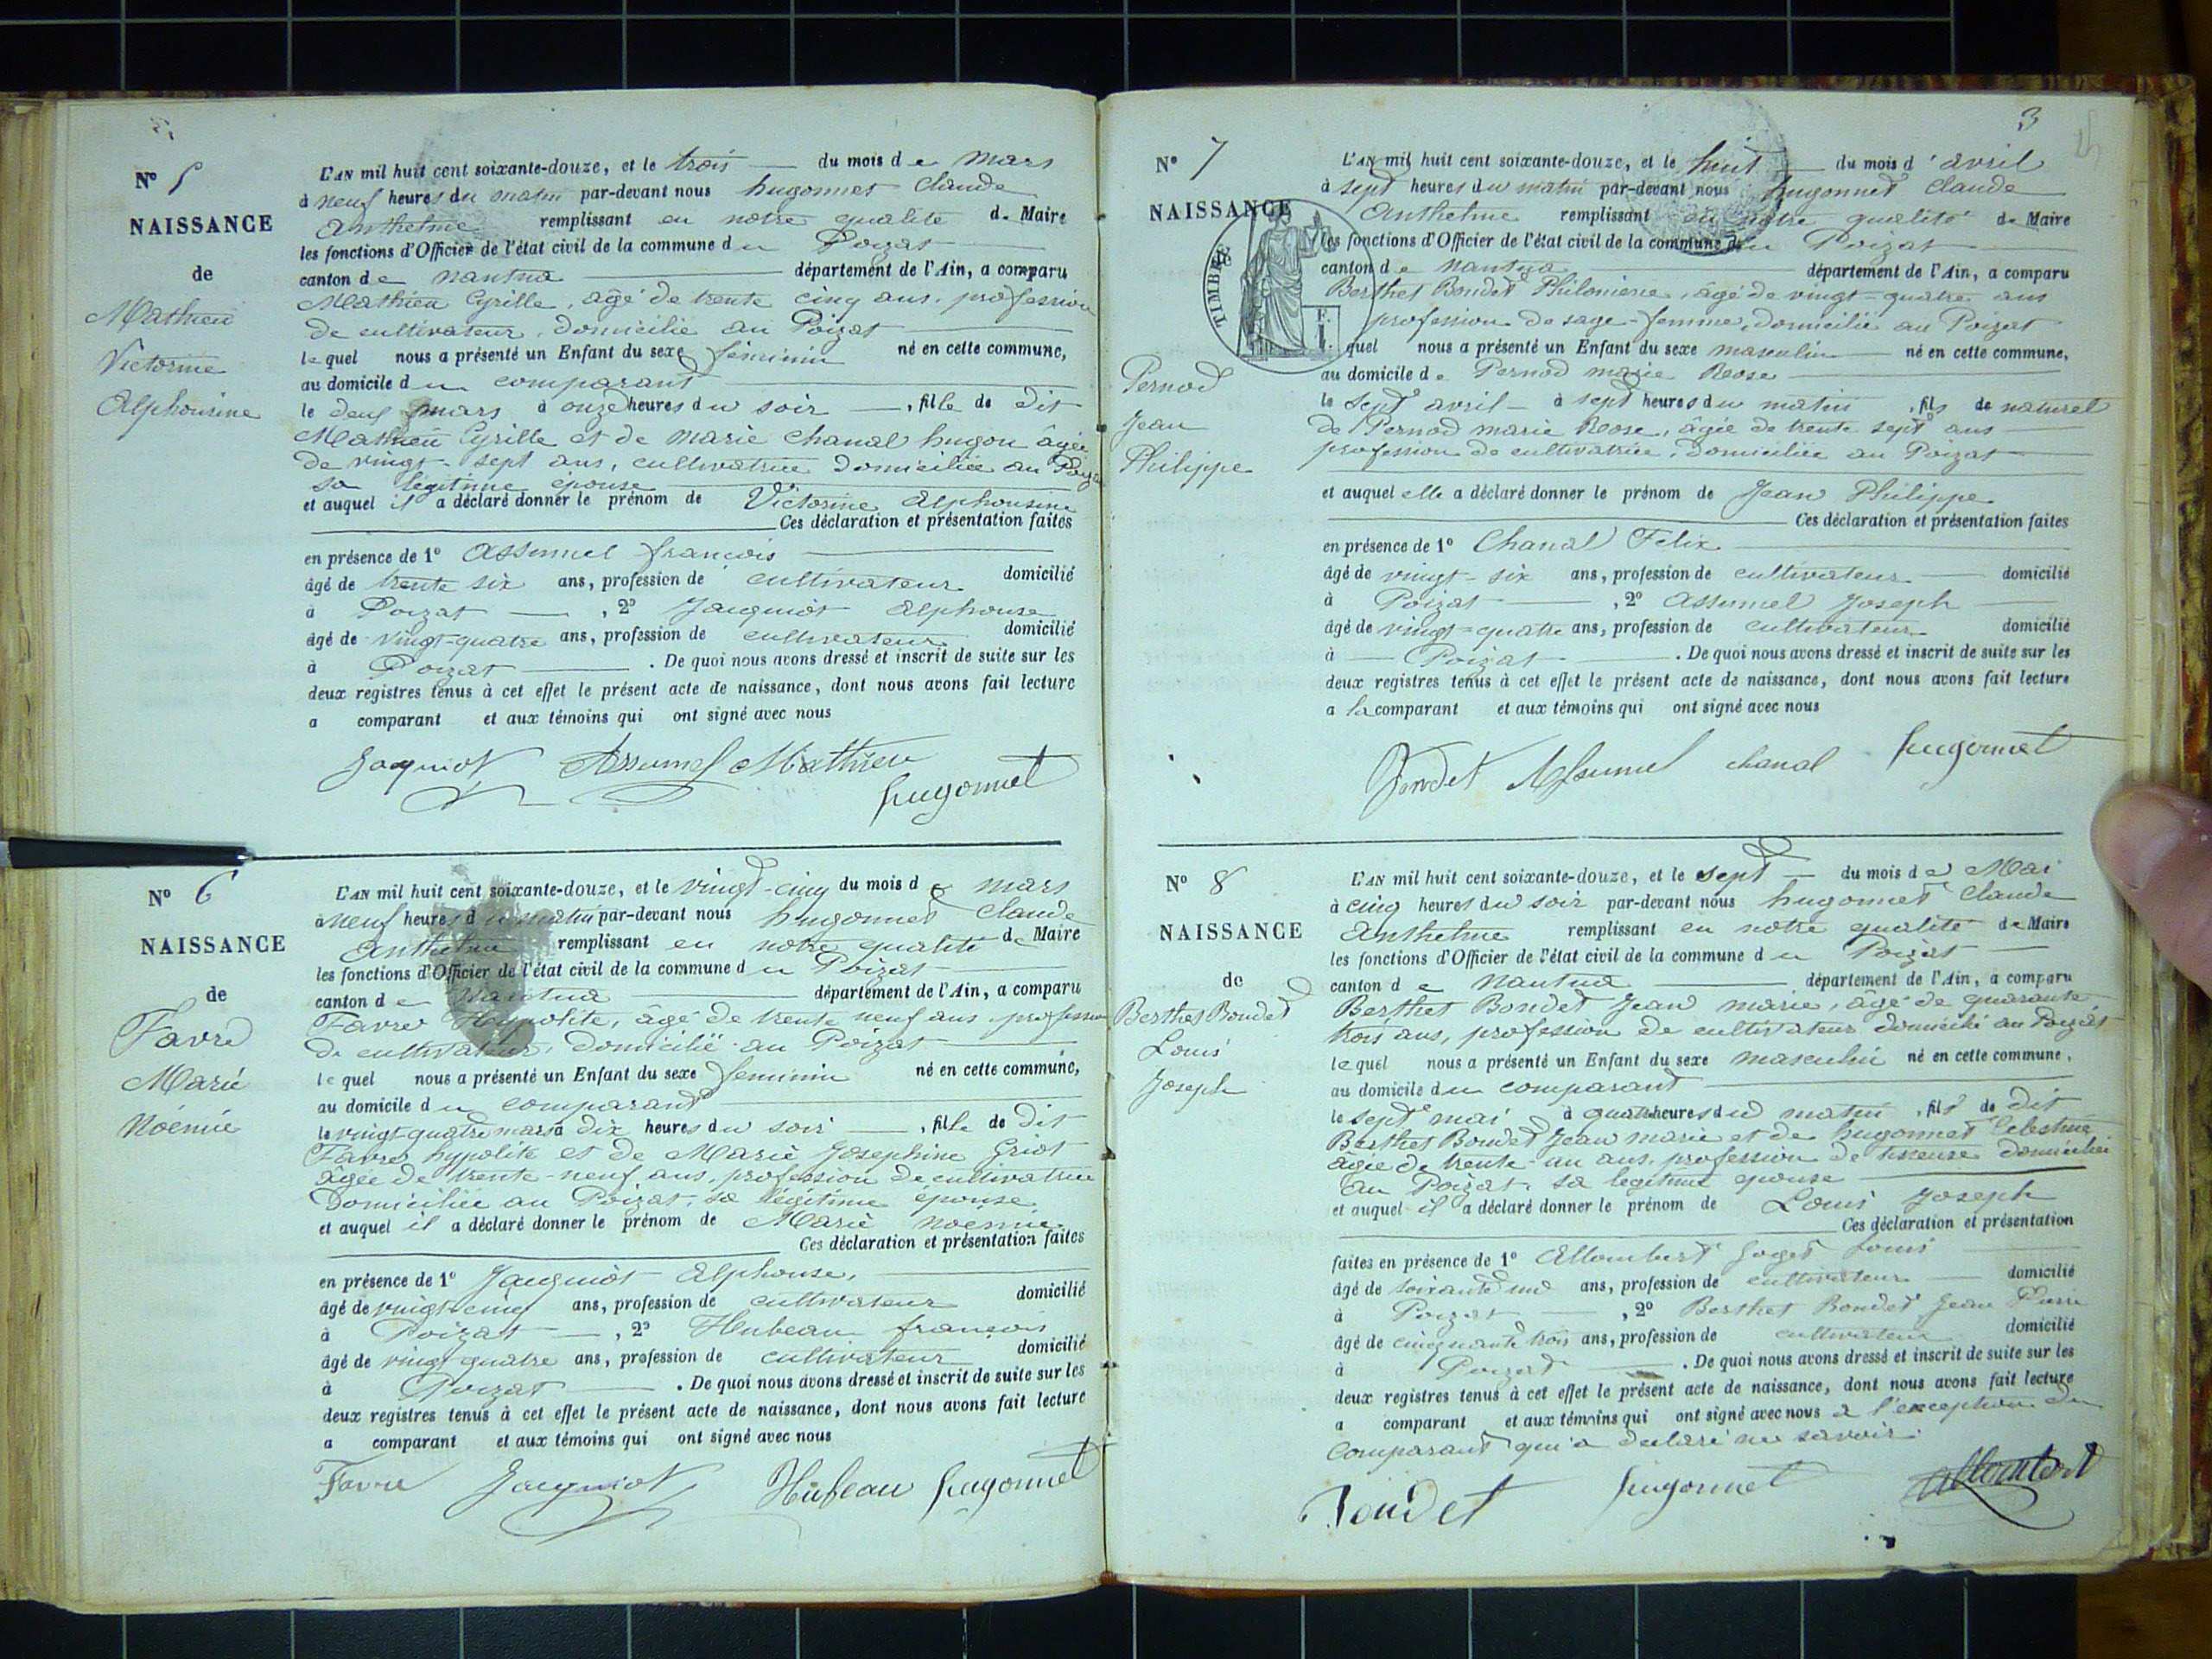 N° 5
NAISSANCE
de
Mathieu
Victorine
Alphonsine
L'AN mil huit cent soixante-douze, et le trois du mois de Mars
à neuf heures du matin par-devant nous hugonnet Claude
Anthelme remplissant en notre qualité de Maire
les fonctions d'Officier de l'état civil de la commune du Poizat
canton de nantua département de l'Ain, a comparu
Mathieu Cyrille, âgé de trente cinq ans, profession
de cultivateur, domicilié au Poizat
lequel nous a présenté un Enfant du sexe féminin né en cette commune,
au domicile du comparant
le deux mars à onze heures du soir, fille de dit
Mathieu Cyrille et de Marie Chanal hugon âgée
de vingt-sept ans, cultivatrice domiciliée au Poizat
sa légitime épouse
et auquel il a déclaré donner le prénom de Victorine Alphonsine
Ces déclaration et présentation faites
en présence de 1° Assumel françois
âgé de trente six ans, profession de cultivateur domicilié
à Poizat, 2° Jacquiot Alphonse
âgé de vingt-quatre ans, profession de cultivateur domicilié
à Poizat. De quoi nous avons dressé et inscrit de suite sur les
deux registres tenus à cet effet le présent acte de naissance, dont nous avons fait lecture
a comparant et aux témoins qui ont signé avec nous
Jaquiot Assumel Mathieu
hugonnet
N° 6
NAISSANCE
de
Favre
Marie
Noémie
L'AN mil huit cent soixante-douze, et le vingt-cinq du mois de mars
à neuf heures du matin par-devant nous hugonnet Claude
Anthelme remplissant en notre qualité de Maire
les fonctions d'Officier de l'état civil de la commune du Poizat
canton de Nantua département de l'Ain, a comparu
Favre Hypolite, âgé de trente neuf ans profession
de cultivateur, domicilié au Poizat
lequel nous a présenté un Enfant du sexe féminin né en cette commune,
au domicile du comparant
le vingt-quatre mars à dix heures du soir, fille de dit
Favre hypolite et de Marie Josephine Griot
âgée de trente-neuf ans, profession de cultivatrice
domiciliée au Poizat, sa légitime épouse
et auquel il a déclaré donner le prénom de Marie Noémie
Ces déclaration et présentation faites
en présence de 1° Jacquiot Alphonse,
âgé de vingt-cinq ans, profession de cultivateur domicilié
à Poizat, 2° Hubeau françois
âgé de vingt quatre ans, profession de cultivateur domicilié
à Poizat. De quoi nous avons dressé et inscrit de suite sur les
deux registres tenus à cet effet le présent acte de naissance, dont nous avons fait lecture
a comparant et aux témoins qui ont signé avec nous
Favre Jaquiot Hubeau hugonnet
3
N° 7
NAISSANCE
TIMBRE
Pernod
Jean
Philippe
L'AN mil huit cent soixante-douze, et le huit du mois d'avril
à sept heures du matin par-devant nous hugonnet Claude
Anthelme remplissant en notre qualité de Maire
les fonctions d'Officier de l'état civil de la commune du Poizat
canton de Nantua département de l'Ain, a comparu
Berthet Bondet Philomene, âgé de vingt-quatre ans
profession de sage-femme, domicilié au Poizat
quel nous a présenté un Enfant du sexe masculin né en cette commune,
au domicile de Pernod marie Rose
le sept avril à sept heures du matin, fils de naturel
de Pernod marie Rose, âgée de trente sept ans
profession de cultivatrice, domiciliée au Poizat
et auquel elle a déclaré donner le prénom de Jean Philippe
Ces déclaration et présentation faites
en présence de 1° Chanal Felix
âgé de vingt-six ans, profession de cultivateur domicilié
à Poizat, 2° Assumel Joseph
âgé de vingt-quatre ans, profession de cultivateur domicilié
à Poizat. De quoi nous avons dressé et inscrit de suite sur les
deux registres tenus à cet effet le présent acte de naissance, dont nous avons fait lecture
a la comparant et aux témoins qui ont signé avec nous
Bondet Assumel chanal hugonnet
N° 8
NAISSANCE
de
Berthet Bondet
Louis
Joseph
L'AN mil huit cent soixante-douze, et le sept du mois de Mai
à cinq heures du soir par-devant nous hugonnet Claude
Anthelme remplissant en notre qualité de Maire
les fonctions d'Officier de l'état civil de la commune du Poizat
canton de Nantua département de l'Ain, a comparu
Berthet Bondet Jean marie, âgé de quarante
trois ans, profession de cultivateur domicilié au Poizat
lequel nous a présenté un Enfant du sexe masculin né en cette commune,
au domicile du comparant
le sept mai à quatre heures du matin, fils de dit
Berthet Bondet Jean marie et de hugonnet Celestine
âgée de trente-un ans, profession de tisseuse domiciliée
au Poizat, sa legitime epouse
et auquel il a déclaré donner le prénom de Louis Joseph
Ces déclaration et présentation
faites en présence de 1° Allombert Goget Louis
âgé de soixante un ans, profession de cultivateur domicilié
à Poizat, 2° Berthet Bondet Jean Pierre
âgé de cinquante trois ans, profession de cultivateur domicilié
à Poizat. De quoi nous avons dressé et inscrit de suite sur les
deux registres tenus à cet effet le présent acte de naissance, dont nous avons fait lecture
a comparant et aux témoins qui ont signé avec nous à l'exception du
comparant qui a declaré ne savoir.
Bondet hugonnet Allombert